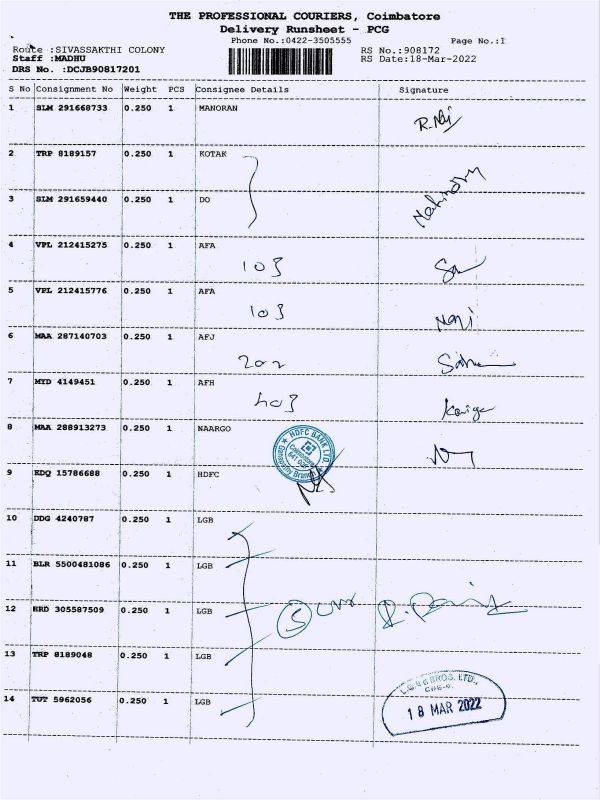 THE PROFESSIONAL COURIERS, Coimbatore
Delivery Runsheet - PCG
Phone No.:0422-3505555 Page No.:1
Route :SIVASSAKTHI COLONY RS No.:908172
Staff :MADHU RS Date:18-Mar-2022
DRS No. :DCJB90817201
S No Consignment No Weight PCS Consignee Details Signature
1 SLM 291668733 0.250 1 MANORAN
2 TRP 8189157 0.250 1 KOTAK
3 SLM 291659440 0.250 1 DO
4 VPL 212415275 0.250 1 AFA
103
5 VPL 212415776 0.250 1 AFA
103
6 MAA 287140703 0.250 1 AFJ
202
7 MYD 4149451 0.250 1 AFH
403
8 MAA 288913273 0.250 1 NAARGO
HDFC BANK LTD.
9 EDQ 15786688 0.250 1 HDFC
10 DDG 4240787 0.250 1 LGB
11 BLR 5500481086 0.250 1 LGB
12 ERD 305587509 0.250 1 LGB
5
13 TRP 8189048 0.250 1 LGB
L.G.B & BROS. LTD.,
CBE-6.
14 TUT 5962056 0.250 1 LGB
18 MAR 2022